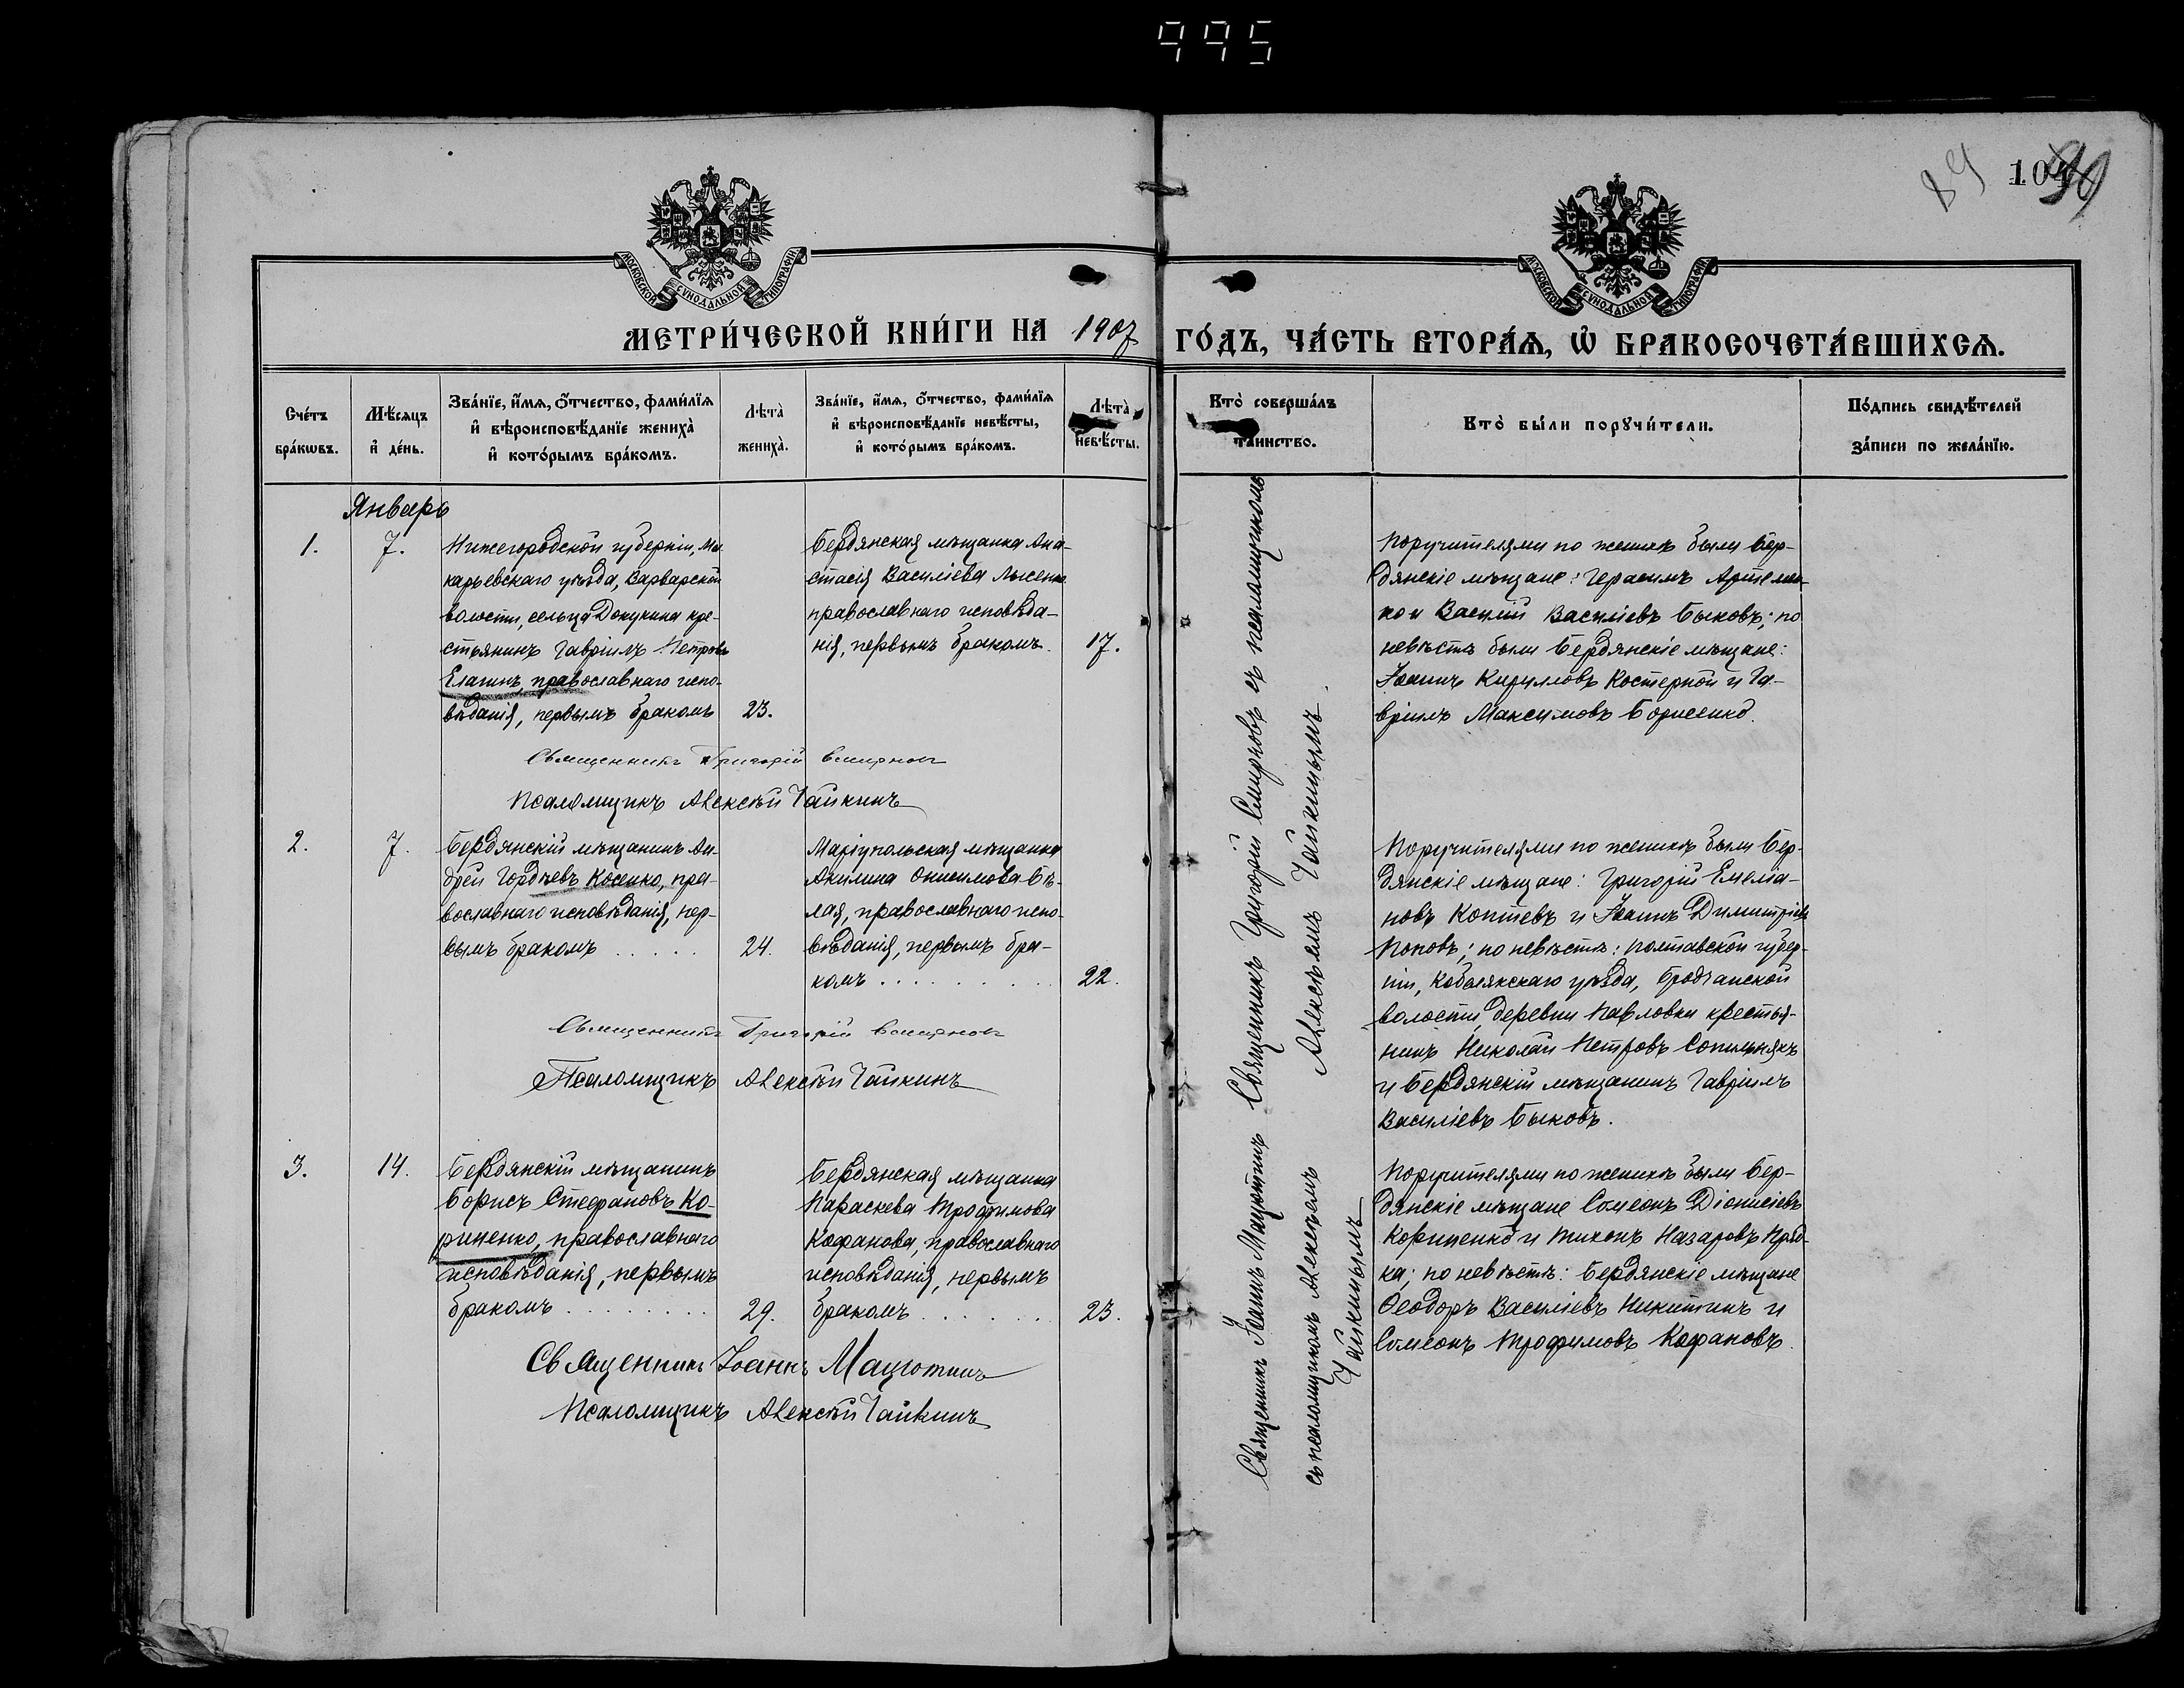 995
89
МОСКОВСКОЙ СѴНОДАЛЬНОЙ ТИПОГРАФІИ
МОСКОВСКОЙ СѴНОДАЛЬНОЙ ТИПОГРАФІИ
МЕТРИ́ЧЕСКОЙ КНИ́ГИ НА 1907 ГО́ДЪ, ЧА́СТЬ ВТОРА́Я, Ѡ҆ БРАКОСОЧЕТА́ВШИХСЯ.
Сче́тъ
бра́кѡвъ.
Мѣ́сяцъ
и҆ де́нь.
Зва́нїе, и҆́мя, ѻ҆́тчество, фами́лїя
и҆ вѣроисповѣ́данїе жениха̀
и҆ кото́рымъ бра́комъ.
Лѣта̀
жениха̀.
Зва́нїе, и҆́мя, ѻ҆́тчество, фами́лїя
и҆ вѣроисповѣ́данїе невѣ́сты,
и҆ кото́рымъ бра́комъ.
Лѣта̀
невѣ́сты.
Кто̀ соверша́лъ
та́инство.
Кто̀ бы́ли порꙋчи́тели.
По́дпись свидѣ́телей
за́писи по жела́нїю.
Январь
1.
7.
Нижегородской губерніи, Ма-
карьевскаго уѣзда, Варварской
волости, сельца Докукина кре-
стьянинъ Гавріилъ Петровъ
Елагинъ, православнаго испо-
вѣданія, первымъ бракомъ
23.
Бердянская мѣщанка Ана-
стасія Василіева Лысенко
православнаго исповѣда-
нія, первымъ бракомъ.
17.
Поручителями по женихѣ были Бер-
дянскіе мѣщане: Герасимъ Артемен-
ко и Василій Василіевъ Быковъ; по
невѣстѣ были Бердянскіе мѣщане:
Іоаннъ Кирилловъ Костерной и Га-
вріилъ Максимовъ Борисенко.
Священникъ Григорій Смирновъ
Псаломщикъ Алексѣй Чайкинъ
2.
7.
Бердянскій мѣщанинъ Ан-
дрей Гордѣевъ Косенко, пра-
вославнаго исповѣданія, пер-
вымъ бракомъ . . . . .
24.
Маріупольская мѣщанка
Акилина Онисимова Бѣ-
лая, православнаго испо-
вѣданія, первымъ бра-
комъ . . . . . . . . .
22.
Поручителями по женихѣ были Бер-
дянскіе мѣщане: Григорій Емелiа-
новъ Коптевъ и Іоаннъ Димитріевъ
Поповъ; по невѣстѣ: Полтавской губер-
ніи, Кобелякскаго уѣзда, Бродчанской
волости, деревни Павловки крестья-
нинъ Николай Петровъ Сопильнякъ
и Бердянскій мѣщанинъ Гавріилъ
Василіевъ Быковъ.
Священникъ Григорій Смирновъ
Псаломщикъ Алексѣй Чайкинъ
Священникъ Григорій Смирновъ съ псаломщикомъ
Алексѣемъ Чайкинымъ.
3.
14.
Бердянскій мѣщанинъ
Борисъ Стефановъ Ко-
риненко, православнаго
исповѣданія, первымъ
бракомъ . . . . . . . .
29.
Бердянская мѣщанка
Параскева Трофимова
Кафанова, православнаго
исповѣданія, первымъ
бракомъ . . . . . . .
23.
Поручителями по женихѣ были Бер-
дянскіе мѣщане Симеонъ Діонисіевъ
Кориненко и Тихонъ Назаровъ Пряд-
ка; по невѣстѣ: Бердянскіе мѣщане
Ѳеодоръ Василіевъ Никитинъ и
Симеонъ Трофимовъ Кафановъ.
Священникъ Іоаннъ Мацютинъ
Псаломщикъ Алексѣй Чайкинъ
Священникъ Іоаннъ Мацютинъ
съ псаломщикомъ Алексѣемъ
Чайкинымъ